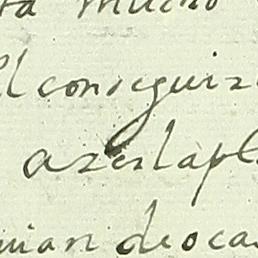 ta mucho
el conseguirs
azerlapl
uian deoca